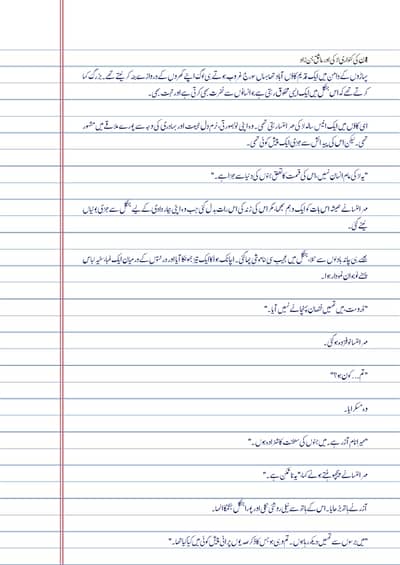 ان کی کنواری لڑکی اور عاشق جن زاد
پہاڑوں کے دامن میں ایک قدیم گاؤں آباد تھا جہاں سورج غروب ہوتے ہی لوگ اپنے گھروں کے دروازے بند کر لیتے تھے۔ بزرگ کہا
کرتے تھے کہ اس جنگل میں ایک ایسی مخلوق رہتی ہے جو انسانوں سے نفرت بھی کرتی ہے اور محبت بھی۔
اسی گاؤں میں ایک انیس سالہ لڑکی مہرالنسا رہتی تھی۔ وہ اپنی خوبصورتی، نرم دل طبیعت اور بہادری کی وجہ سے پورے علاقے میں مشہور
تھی۔ لیکن اس کی پیدائش سے جڑی ایک پیش گوئی تھی۔
"یہ لڑکی عام انسان نہیں، اس کی قسمت کا تعلق جنوں کی دنیا سے جڑا ہے۔"
مہرالنسا نے ہمیشہ اس بات کو ایک وہم سمجھا، مگر اس کی زندگی اس رات بدل گئی جب وہ اپنی بیمار دادی کے لیے جنگل سے جڑی بوٹیاں
لینے گئی۔
جیسے ہی چاند بادلوں سے نکلا، جنگل میں عجیب سی خاموشی چھا گئی۔ اچانک ہوا کا ایک تیز جھونکا آیا اور درختوں کے درمیان ایک لمبا، سفید لباس
پہنے نوجوان نمودار ہوا۔
"ڈرو مت، میں تمہیں نقصان پہنچانے نہیں آیا۔"
مہرالنسا خوفزدہ ہو گئی۔
"تم... کون ہو؟"
وہ مسکرایا۔
"میرا نام آذر ہے۔ میں جنوں کی سلطنت کا شہزادہ ہوں۔"
مہرالنسا نے پیچھے ہٹتے ہوئے کہا، "یہ ناممکن ہے۔"
آذر نے ہاتھ بڑھایا۔ اس کے ہاتھ سے نیلی روشنی نکلی اور پورا جنگل جگمگا اٹھا۔
"میں برسوں سے تمہیں دیکھ رہا ہوں۔ تم وہی ہو جس کا ذکر صدیوں پرانی پیش گوئی میں کیا گیا تھا۔"